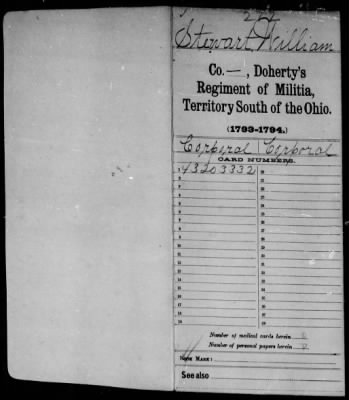 Stewart, William
Co. —, Doherty's
Regiment of Militia,
Territory South of the Ohio.
(1793-1794.)
Corporal Corporal
CARD NUMBERS.
1 43203332 20
2 21
3 22
4 23
5 24
6 25
7 26
8 27
9 28
10 29
11 30
12 31
13 32
14 33
15 34
16 35
17 36
18 37
19 38
Number of medical cards herein 0
Number of personal papers herein 0
BOOK MARK:
See also